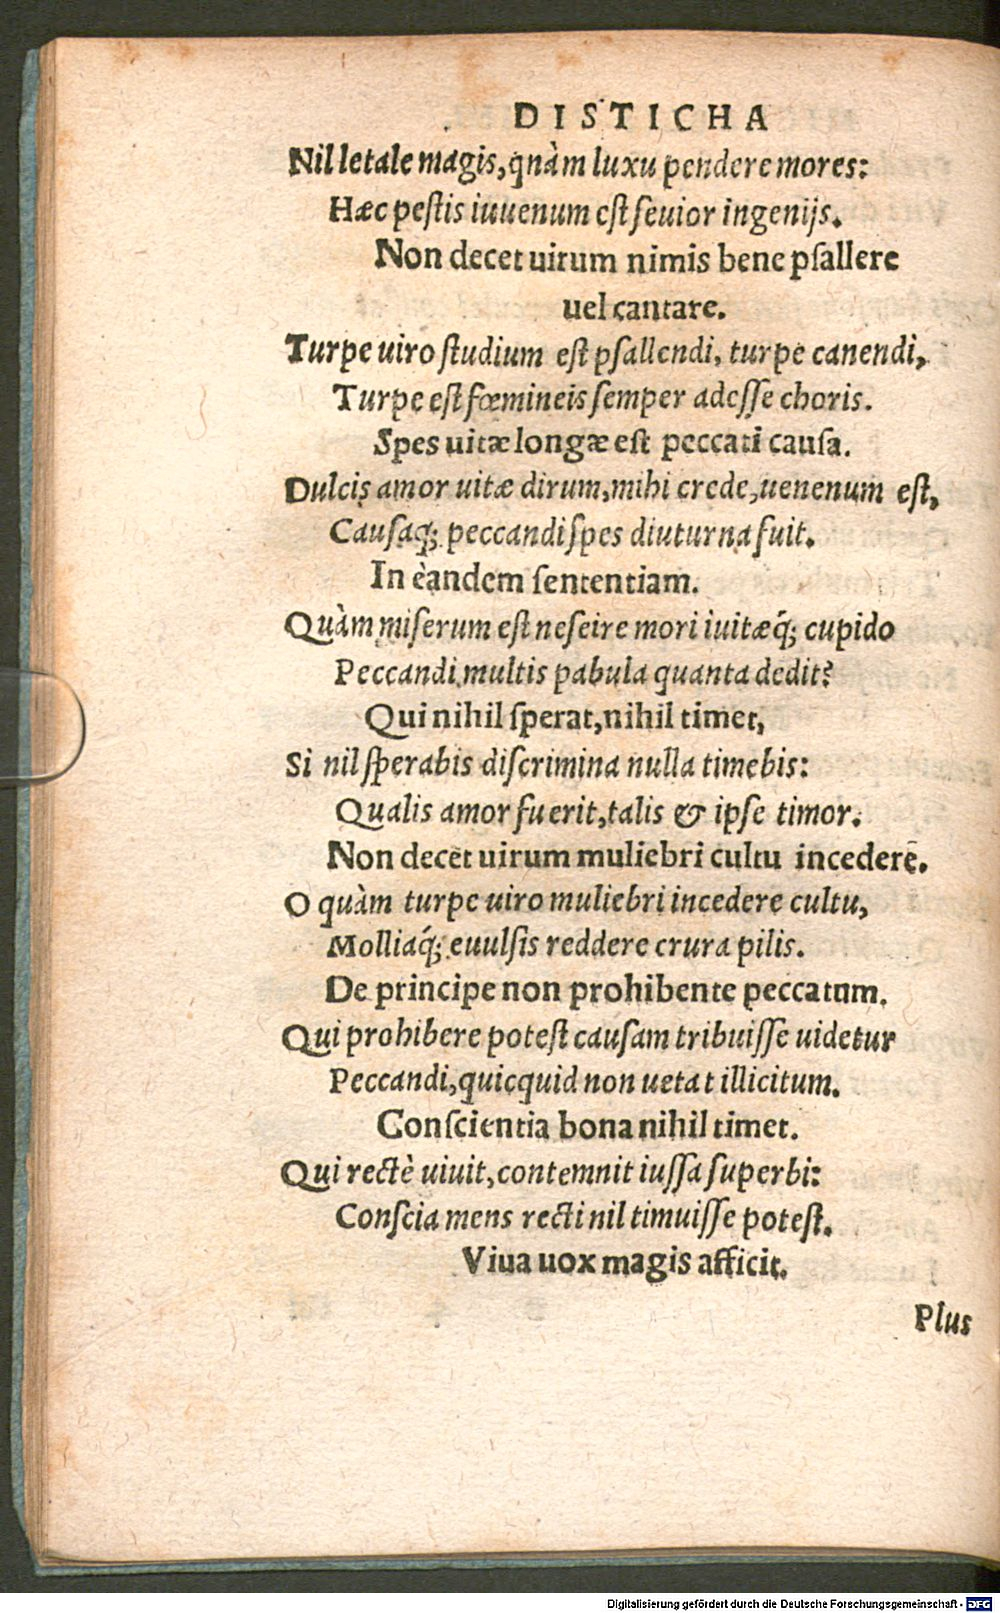 DISTICHA
Nil letale magis, qnàm luxu pendere mores:
Hæc pestis iuuenum est seuior ingenijs.
Non decet uirum nimis bene psallere
uel cantare.
Turpe uiro studium est psallendi, turpe canendi,
Turpe est fœmineis semper adesse choris.
Spes uitæ longæ est peccati causa.
Dulcis amor uitæ dirum, mihi crede, uenenum est,
Causaq; peccandi spes diuturna fuit.
In èandem sententiam.
Quàm miserum est neseire mori iuitæq́; cupido
Peccandi multis pabula quanta dedit?
Qui nihil sperat, nihil timet,
Si nil sperabis discrimina nulla timebis:
Qualis amor fuerit, talis & ipse timor.
Non decet uirum muliebri cultu incedere.
O quàm turpe uiro muliebri incedere cultu,
Molliaq́; euulsis reddere crura pilis.
De principe non prohibente peccatum.
Qui prohibere potest causam tribuisse uidetur
Peccandi, quicquid non uetat illicitum.
Conscientia bona nihil timet.
Qui rectè uiuit, contemnit iussa superbi:
Conscia mens recti nil timuisse potest.
Viua uox magis afficit.
Plus
Digitalisierung gefördert durch die Deutsche Forschungsgemeinschaft - DFG